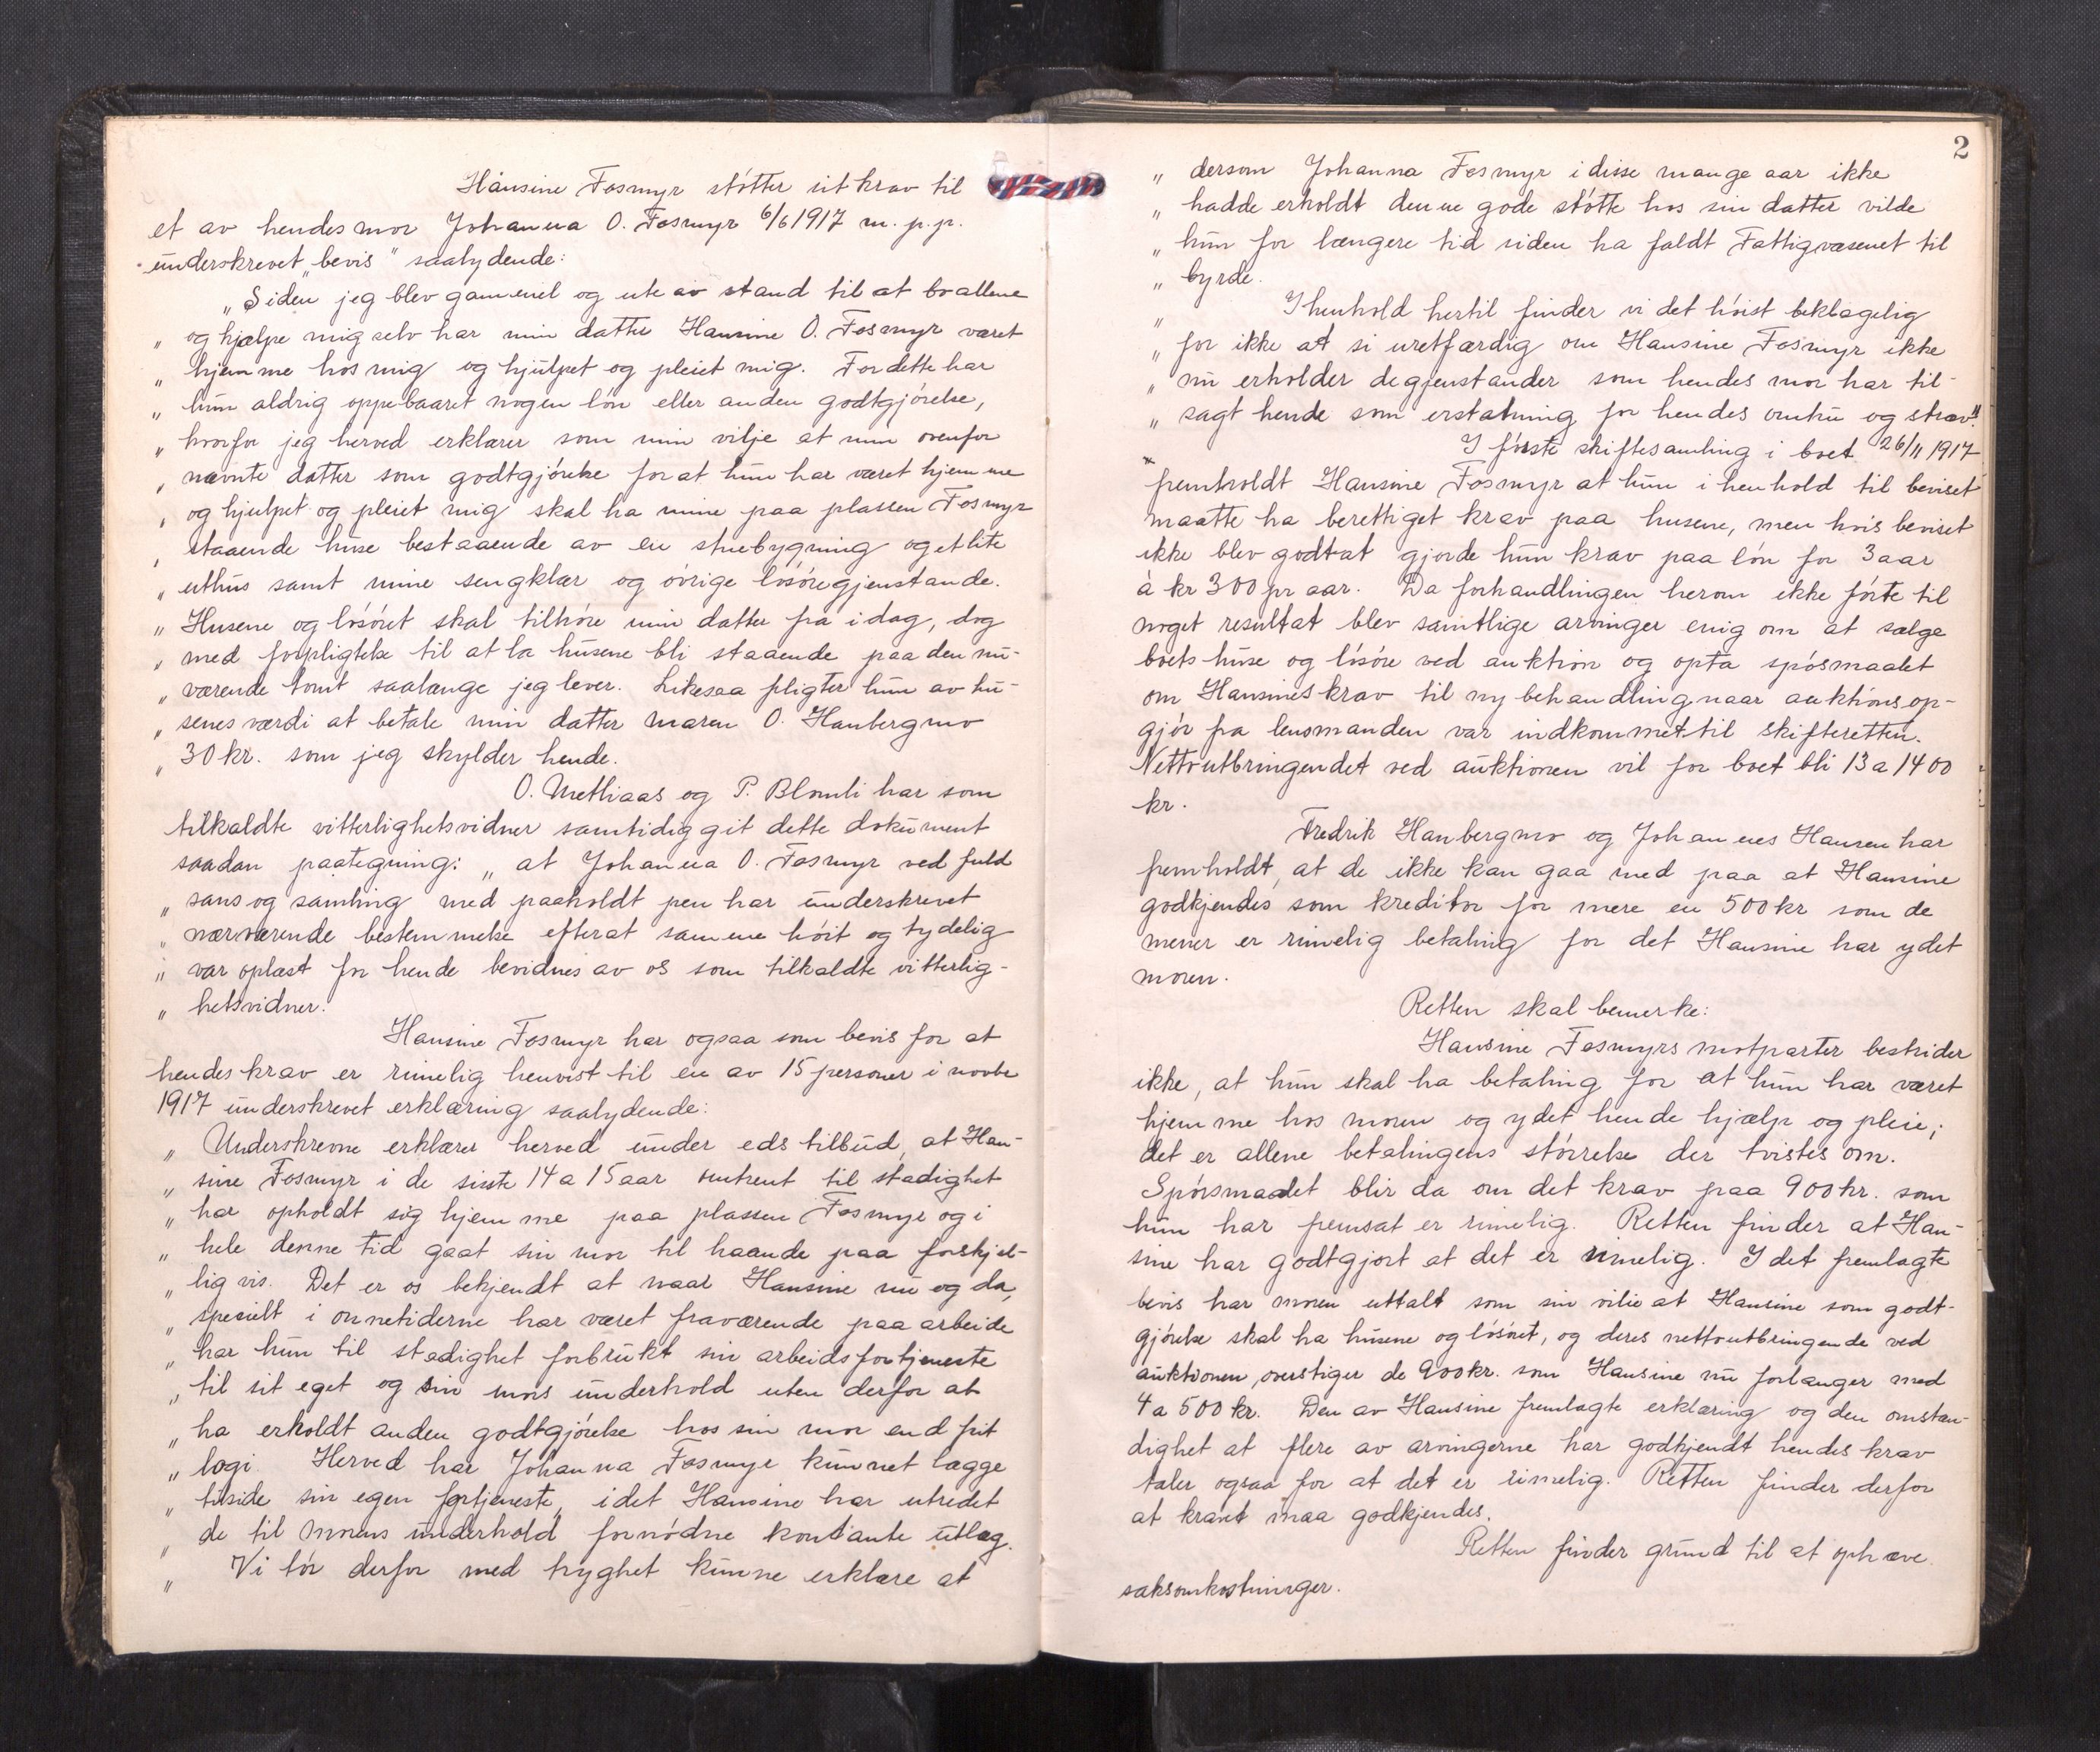 Hansine Fosmyr støtter sit krav til
et av hendes mor Johanna O. Fosmyr 6/6 1917 m. p. p.
underskrevet „bevis" saalydende:
„Siden jeg blev gammel og ute av stand til at bo allene
„ og hjælpe mig selv har min datter Hansine O. Fosmyr været
„ hjemme hos mig og hjulpet og pleiet mig. For dette har
„ hun aldrig oppebaaret nogen løn eller anden godtgjørelse,
„ hvorfor jeg herved erklærer som min vilje at min ovenfor
„ nævnte datter som godtgjørelse for at hun har været hjemme
„ og hjulpet og pleiet mig skal ha mine paa plassen Fosmyr
„ staaende huse bestaaende av en stuebygning og et lite
„ uthus samt mine sengklær og øvrige løsøregjenstande.
„ Husene og løsøret skal tilhøre min datter fra idag, dog
„ med forpligtelse til at la husene bli staaende paa den nu-
„ værende tomt saalænge jeg lever. Likesaa pligter hun av hu-
„ senes værdi at betale min datter Maren O. Hanbergmo
„ 30 kr. som jeg skylder hende.
O. Metliaas og P. Blomli har som
tilkaldte vitterlighetsvidner samtidig git dette dokument
saadan paategning: „ at Johanna O. Fosmyr ved fuld
„ sans og samling med paaholdt pen har underskrevet
„ nærværende bestemmelse efterat samme høit og tydelig
„ var oplæst for hende bevidnes av os som tilkaldte vitterlig-
„ hetsvidner.
Hansine Fosmyr har ogsaa som bevis for at
hendes krav er rimelig henvist til en av 15 personer i novbr
1917 underskrevet erklæring saalydende:
„ Underskrevne erklærer herved under eds tilbud, at Han-
„ sine Fosmyr i de sisste 14 a 15 aar omtrent til stadighet
„ har opholdt sig hjemme paa plassen Fosmyr og i
„ hele denne tid gaat sin mor til haande paa forskjel-
„ lig vis. Det er os bekjendt at naar Hansine nu og da,
„ specielt i onnetiderne har været fraværende paa arbeide
„ har hun til stadighet forbrukt sin arbeidsfortjeneste
„ til sit eget og sin mors underhold uten derfor at
„ ha erholdt anden godtgjørelse hos sin mor end frit
„ logi. Herved har Johanna Fosmyr kunnet lægge
„ tilside sin egen fortjeneste, idet Hansine har utredet
„ de til morens underhold fornødne kontante utlæg.
„ Vi tør derfor med tryghet kunne erklære at
2
„ dersom Johanna Fosmyr i disse mange aar ikke
„ hadde erholdt denne gode støtte hos sin datter vilde
„ hun for længere tid siden ha faldt Fattigvæsenet til
„ byrde.
„ I henhold hertil finder vi det høist beklagelig
„ for ikke at si uretfærdig om Hansine Fosmyr ikke
„ nu erholder de gjenstander som hendes mor har til-
„ sagt hende som erstatning for hendes omhu og stræv."
I første skiftesamling i boet 26/11 1917
fremholdt Hansine Fosmyr at hun i henhold til beviset
maatte ha berettiget krav paa husene, men hvis beviset
ikke blev godtat gjorde hun krav paa løn for 3 aar
à kr 300 pr aar. Da forhandlingen herom ikke førte til
noget resultat blev samtlige arvinger enig om at sælge
boets huse og løsøre ved auktion og opta spøsmaalet
om Hansines krav til ny behandling naar auktionsop-
gjør fra lensmanden var indkommet til skifteretten.
Nettoutbringendet ved auktionen vil for boet bli 13 a 1400
kr.
Fredrik Hanbergmo og Johannes Hansen har
fremholdt, at de ikke kan gaa med paa at Hansine
godkjendes som kreditor for mere en 500 kr som de
mener er rimelig betaling for det Hansine har ydet
moren.
Retten skal bemerke:
Hansine Fosmyrs motparter bestrider
ikke, at hun skal ha betaling for at hun har været
hjemme hos moren og ydet hende hjælp og pleie;
det er allene betalingens størrelse der tvistes om.
Spørsmaalet blir da om det krav paa 900 kr. som
hun har fremsat er rimelig. Retten finder at Han-
sine har godtgjort at det er rimelig. I det fremlagte
bevis har moren uttalt som sin vilie at Hansine som godt-
gjørelse skal ha husene og løsøret, og deres nettoutbringende ved
auktionen, overstiger de 900 kr. som Hansine nu forlanger med
4 a 500 kr. Den av Hansine fremlagte erklæring og den omstæn-
dighet at flere av arvingerne har godkjendt hendes krav
taler ogsaa for at det er rimelig. Retten finder derfor
at kravet maa godkjendes.
Retten finder grund til at ophæve
saksomkostninger.